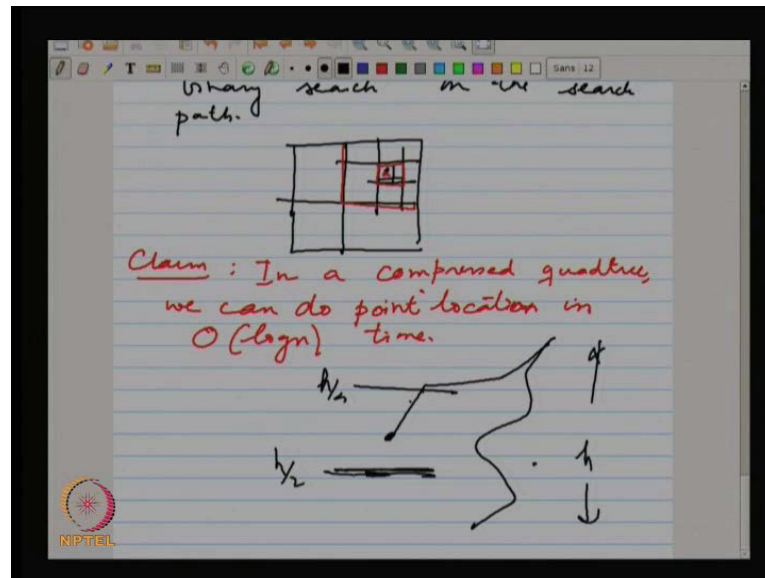 Sans 12
binary search on the search
path.
Claim : In a compressed quadtree,
we can do point location in
O (logn) time.
h/4
h
h/2
NPTEL